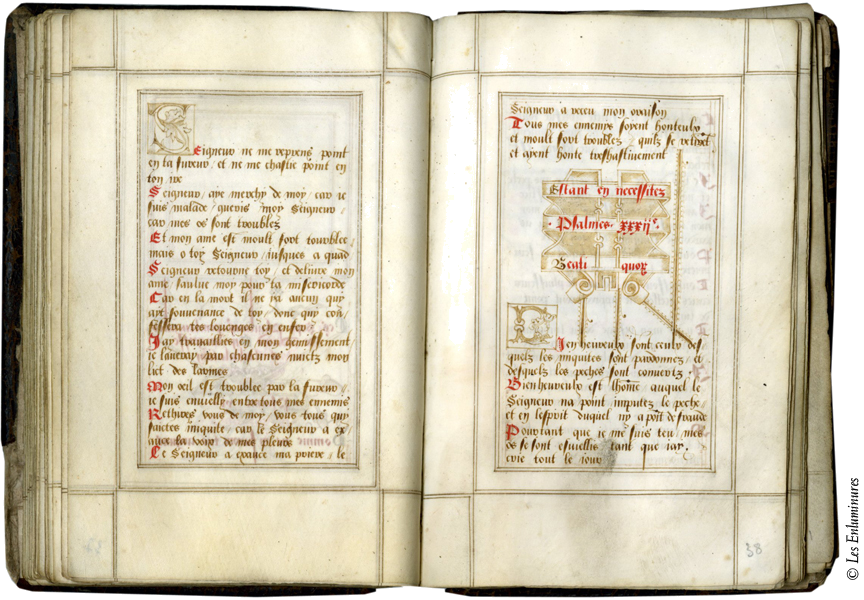 Seigneur ne me reprens point
en ta fureur, et ne me chastie point en
ton ire
Seigneur, aye merchy de moy, car je
suis malade, gueris moy Seigneur,
car mes os sont troublez
Et mon ame est moult fort tourblee,
mais o toy Seigneur, jusques a quãd
Seigneur retourne toy, et delivre mon
ame, saulve moy pour ta misericorde
Car en la mort il ne ya aucun quy
aye souvenance de toy, donc quy cõn
fessera tes louenges en enfer
Jay travaillies en mon gemissement,
je laveray par chascunes nuictz mon
lict des larmes
Mon œil est troublee par la fureur,
je suis envielly entre tous mes ennemis
Rethires vous de moy, vous tous quy
faictes iniquite, car le Seigneur a ex-
auce la voix de mes pleurs
Le Seigneur a exauce ma priere, le
Seigneur a receu mon oraison
Tous mes ennemys soyent honteulx,
et moult fort troublez,
et ayent honte treshastivement
Estant en necessitez
Psalmes xxxii^e.
Beati quor
Bien heureulx sont ceulx des-
quelz les iniquites sont pardonnez, et
desquelz les peches sont couvertz.
Bienheureulx est lhõme auquel le
Seigneur na point imputez le peche,
et en lesprit duquel ny a poĩt de fraude
Pourtant que je me suis teu, mes
os se sont envielles tant que jay.
crie tout le jour
38
© Les Enluminures